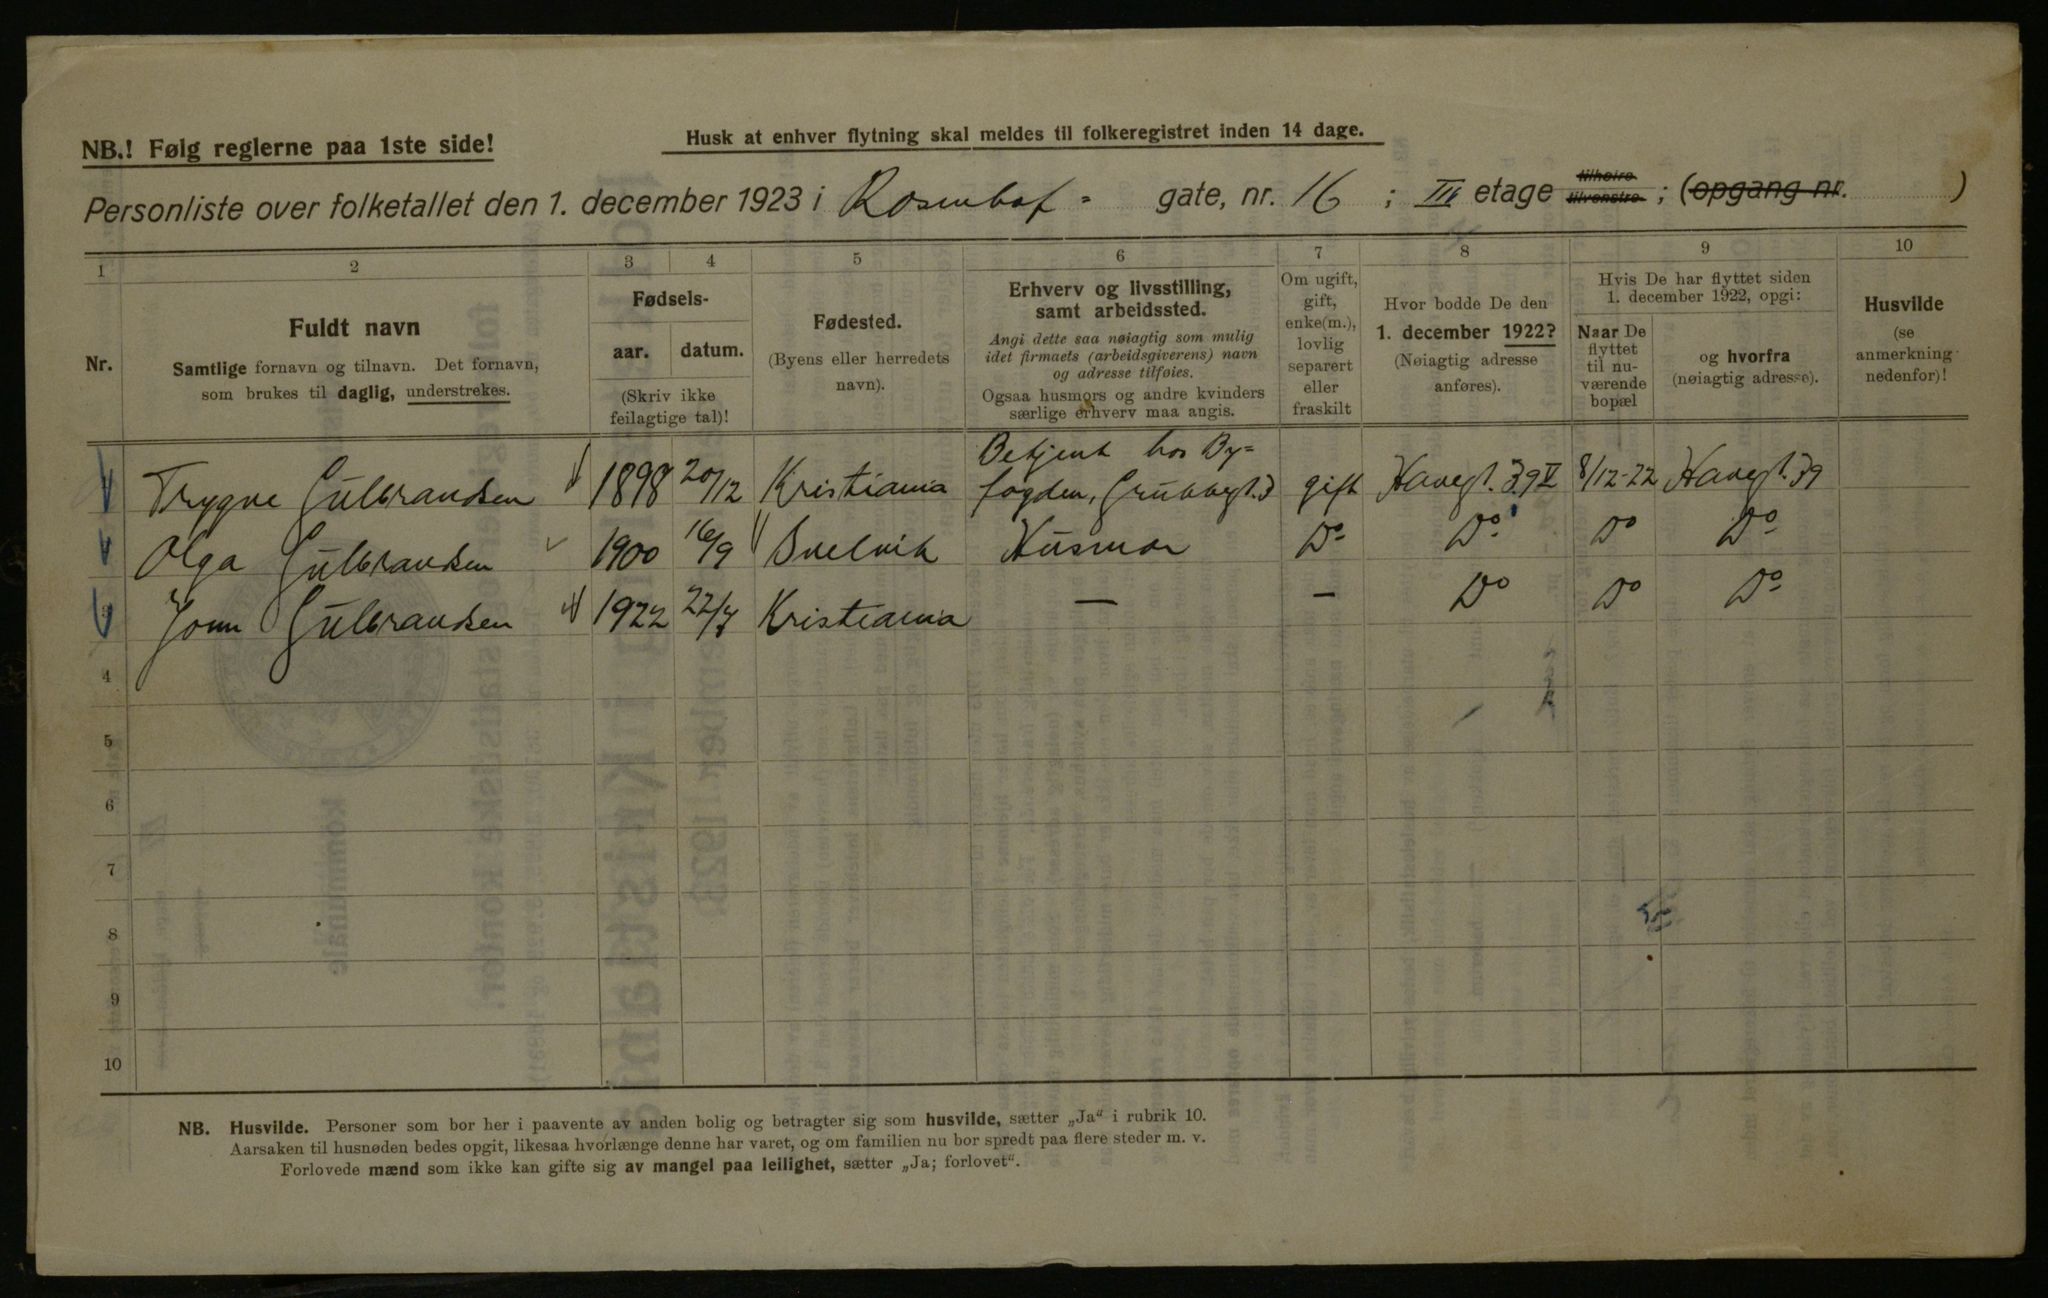 NB.! Følg reglerne paa 1ste side!
Husk at enhver flytning skal meldes til folkeregistret inden 14 dage.
Personliste over folketallet den 1. december 1923 i Rosenhof- gate, nr. 16 ; III etage tilhøire tilvenstre ; (opgang nr. )
1 2 3 4 5 6 7 8 9 10
Nr.
Fuldt navn
Samtlige fornavn og tilnavn. Det fornavn,
som brukes til daglig, understrekes.
Fødsels-
aar. datum.
(Skriv ikke
feilagtige tal)!
Fødested.
(Byens eller herredets
navn).
Erhverv og livsstilling,
samt arbeidssted.
Angi dette saa nøiagtig som mulig
idet firmaets (arbeidsgiverens) navn
og adresse tilføies.
Ogsaa husmors og andre kvinders
særlige erhverv maa angis.
Om ugift,
gift,
enke(m.),
lovlig
separert
eller
fraskilt
Hvor bodde De den
1. december 1922?
(Nøiagtig adresse
anføres).
Hvis De har flyttet siden
1. december 1922, opgi:
Naar De
flyttet
til nu-
værende
bopæl
og hvorfra
(nøiagtig adresse).
Husvilde
(se
anmerkning
nedenfor)!
Betjent hos By=
Trygve Gulbrandsen 1898 20/12 Kristiania fogden, Grubbegt. 3 gift Havegt. 39 V 8/12-22 Havegt. 39
Olga Gulbrandsen 1900 16/9 Svelvik Husmor Do Do Do Do
3 Jonn Gulbrandsen 1922 22/7 Kristiania — — Do Do Do
4
5
6
7
8
9
10
NB. Husvilde. Personer som bor her i paavente av anden bolig og betragter sig som husvilde, sætter „Ja“ i rubrik 10.
Aarsaken til husnøden bedes opgit, likesaa hvorlænge denne har varet, og om familien nu bor spredt paa flere steder m. v.
Forlovede mænd som ikke kan gifte sig av mangel paa leilighet, sætter „Ja; forlovet“.